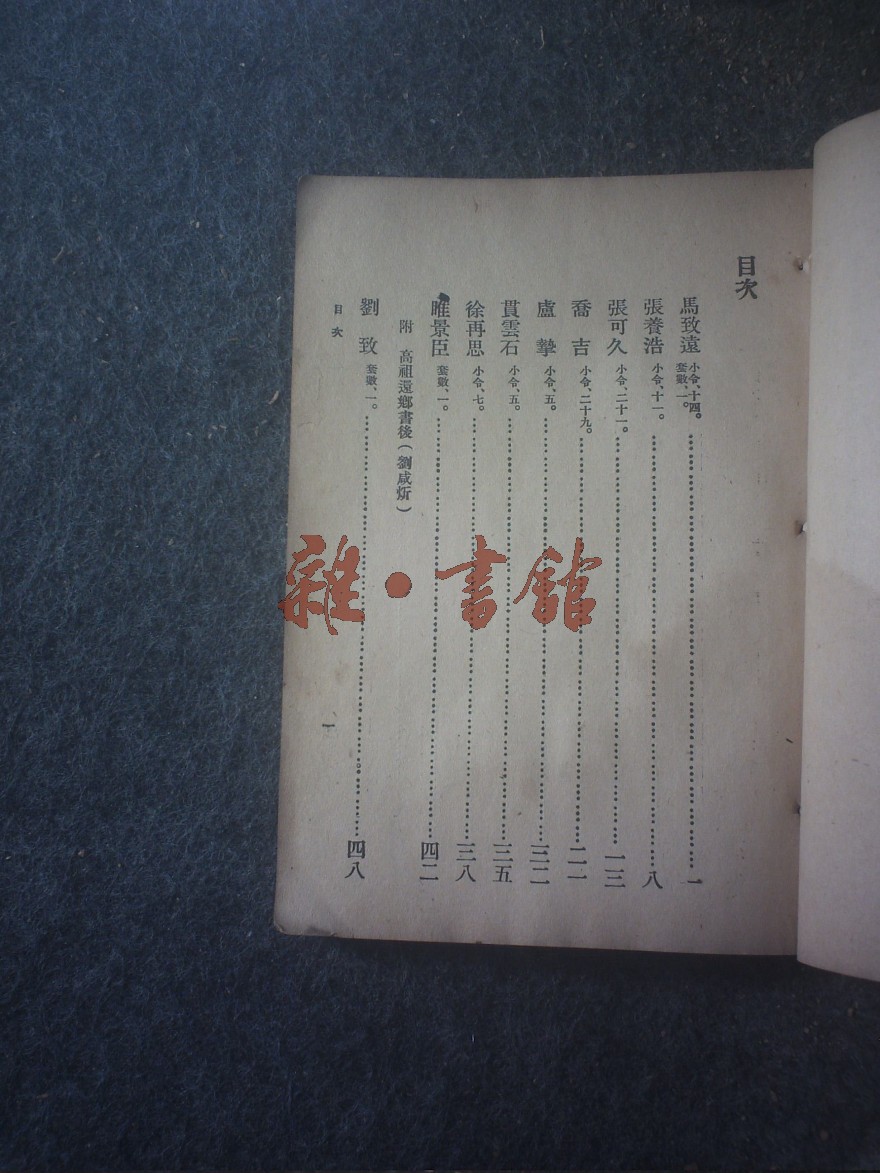 目次
馬致遠 小令、十四。套數、一。 一
張養浩 小令、十一。 八
張可久 小令、二十一。 一三
喬吉 小令、二十九。 二一
盧摯 小令、五。 三二
貫雲石 小令、五。 三五
徐再思 小令、七。 三八
睢景臣 套數、一。 四二
附 高祖還鄉書後(劉咸炘)
劉致 套數、一。 四八
目次
一
雜·書館